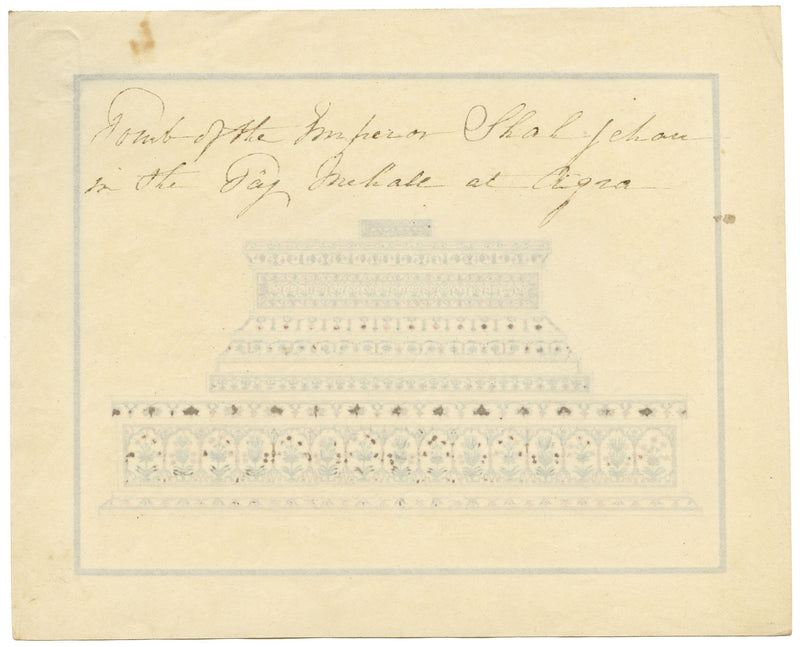 Tomb of the Emperor Shah-jehan
in the Tāj Mehall at Agra